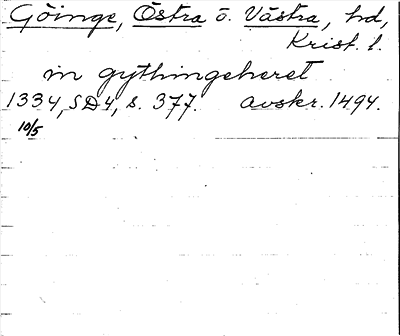 Göinge, Östra o. Västra, hd,
Krist. l.
in gythingeheret
1334, SD4, s. 377. avskr. 1494.
10/5